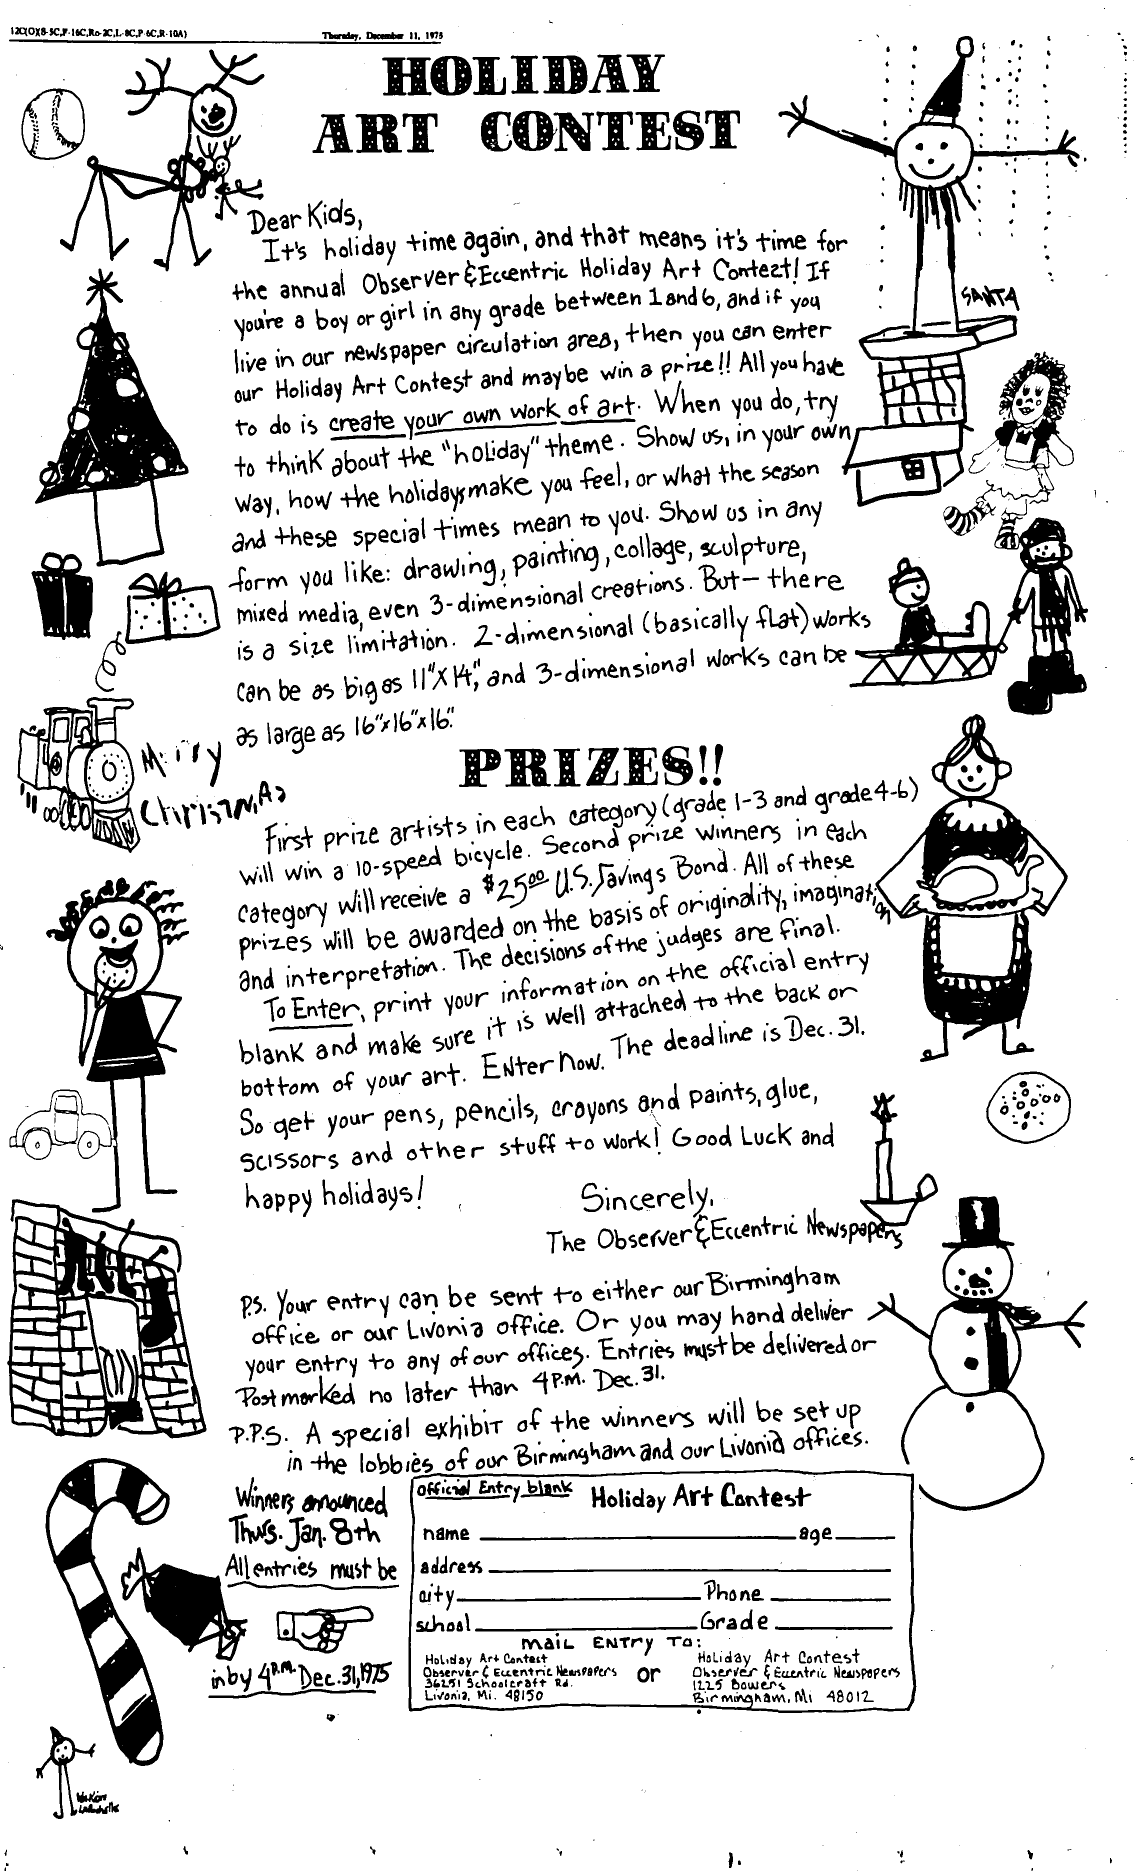 12C(O)(S-5C,F-16C,Ro-2C,L-8C,P-6C,R-10A)
Thursday, December 11, 1975
HOLIDAY
ART CONTEST
Dear Kids,
It's holiday time again, and that means it's time for
the annual Observer & Eccentric Holiday Art Contest! If
you're a boy or girl in any grade between 1 and 6, and if you
live in our newspaper circulation area, then you can enter
our Holiday Art Contest and maybe win a prize!! All you have
to do is create your own work of art. When you do, try
to think about the "holiday" theme. Show us, in your own
way, how the holidays make you feel, or what the season
and these special times mean to you. Show us in any
form you like: drawing, painting, collage, sculpture,
mixed media, even 3-dimensional creations. But— there
is a size limitation. 2-dimensional (basically flat) works
can be as big as 11"x14", and 3-dimensional works can be
as large as 16"x16"x16".
SANTA
Merry
Christmas
PRIZES!!
First prize artists in each category (grade 1-3 and grade 4-6)
will win a 10-speed bicycle. Second prize winners in each
category will receive a $25.00 U.S. Savings Bond. All of these
prizes will be awarded on the basis of originality, imagination
and interpretation. The decisions of the judges are final.
To Enter, print your information on the official entry
blank and make sure it is well attached to the back or
bottom of your art. Enter Now. The deadline is Dec. 31.
So get your pens, pencils, crayons and paints, glue,
scissors and other stuff to work! Good Luck and
happy holidays!
Sincerely,
The Observer & Eccentric Newspapers
P.S. Your entry can be sent to either our Birmingham
office or our Livonia office. Or you may hand deliver
your entry to any of our offices. Entries must be delivered or
Postmarked no later than 4 P.M. Dec. 31.
P.P.S. A special exhibit of the winners will be set up
in the lobbies of our Birmingham and our Livonia offices.
Winners announced
Thurs. Jan. 8th
All entries must be
in by 4 P.M. Dec. 31, 1975
Official Entry blank Holiday Art Contest
name age
address
city Phone
school Grade
MAIL ENTRY TO:
Holiday Art Contest
Observer & Eccentric Newspapers
36251 Schoolcraft Rd.
Livonia, Mi. 48150
or
Holiday Art Contest
Observer & Eccentric Newspapers
1225 Bowers
Birmingham, Mi 48012